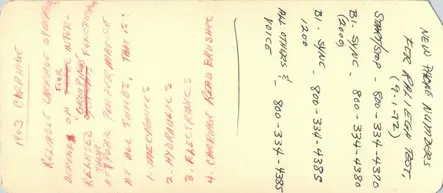 NEW PHONE NUMBERS
FOR RALEIGH TEST,
(9-1-72)
START/STOP - 800-334-4380
BI. SYNC - 800-334-4380
(2000)
BI. SYNC - 800-334-4385
1200
ALL OTHERS & - 800-334-4385
VOICE
1403 CARRIAGE
RELIABLE CARRIAGE OPERATION
DEPENDS ON FOUR INTER-
RELATED FUNCTIONS
PERFORMANCE
AT ALL TIMES, THAT IS:
1. MECHANICS
2. HYDRAULICS
3. ELECTRONICS
4. CARRIAGE READ BRUSHES